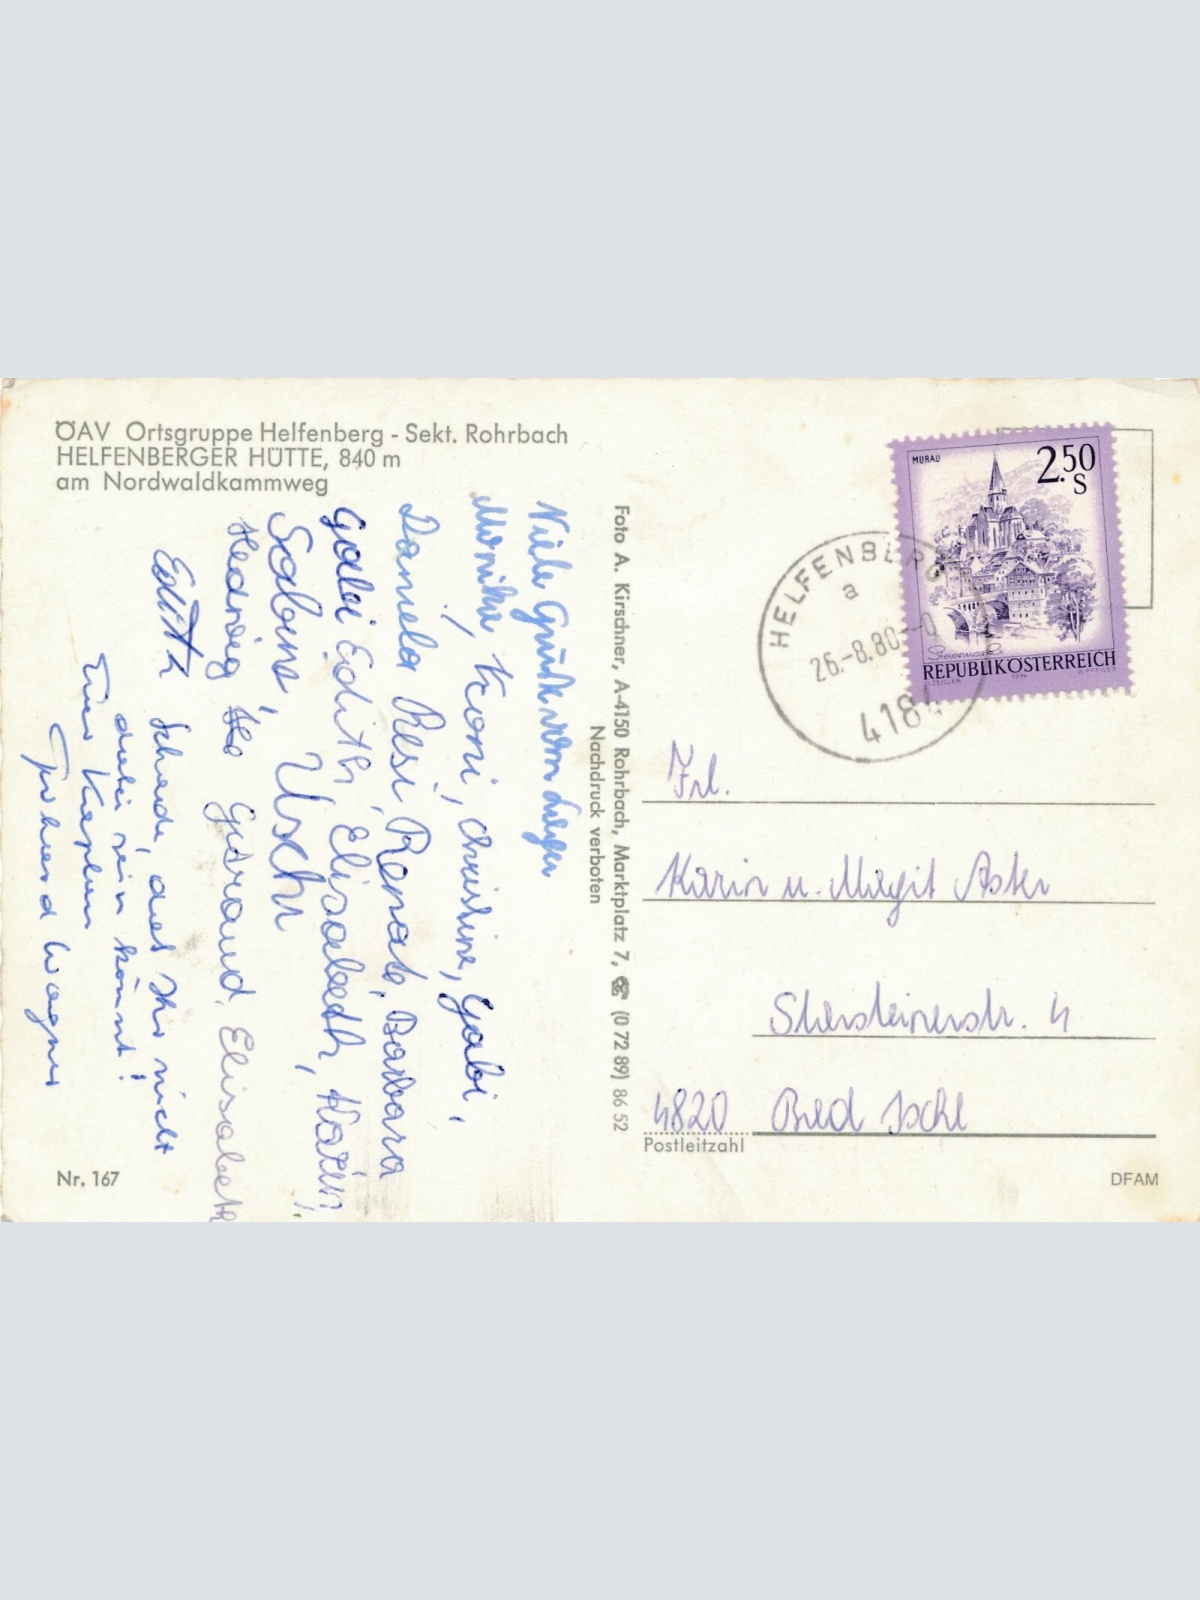 ÖAV Ortsgruppe Helfenberg - Sekt. Rohrbach
HELFENBERGER HÜTTE, 840 m
am Nordwaldkammweg
Viele Grüße vom Lager
Monika, Kroni, Christine, Gabi,
Daniela Resi, Renate, Barbara
Gabi Edith, Elisabeth, Karin,
Sabine, Uschi
Hedwig Gertraud, Elisabeth
Edith
Schade, daß Ihr nicht
dabei sein könnt!
Euer Kaplan
Wagner
Foto A. Kirschner, A-4150 Rohrbach, Marktplatz 7, ☎ (0 72 89) 86 52
Nachdruck verboten
MURAU
2.50
S
Steiermark
REPUBLIK ÖSTERREICH
HELFENBERG
a
26.-8.80
4184
Frl.
Karin u. Margit
4
4820 Bad Ischl
Postleitzahl
Nr. 167
DFAM